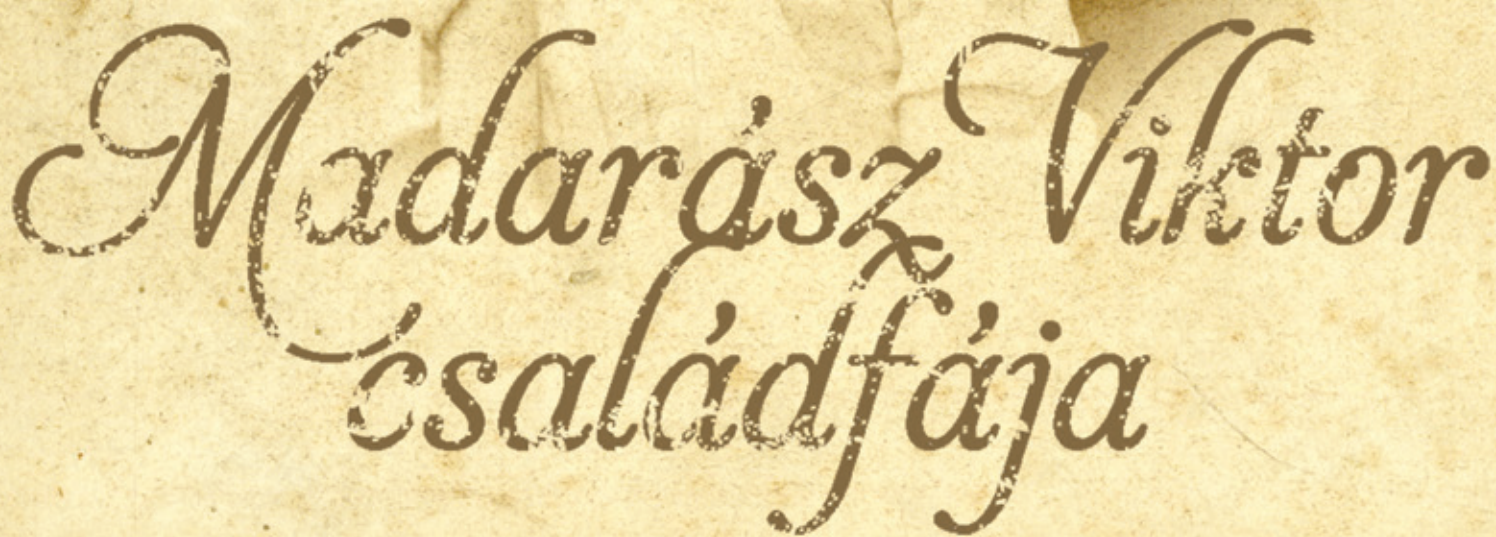 Madarász Viktor
családfája